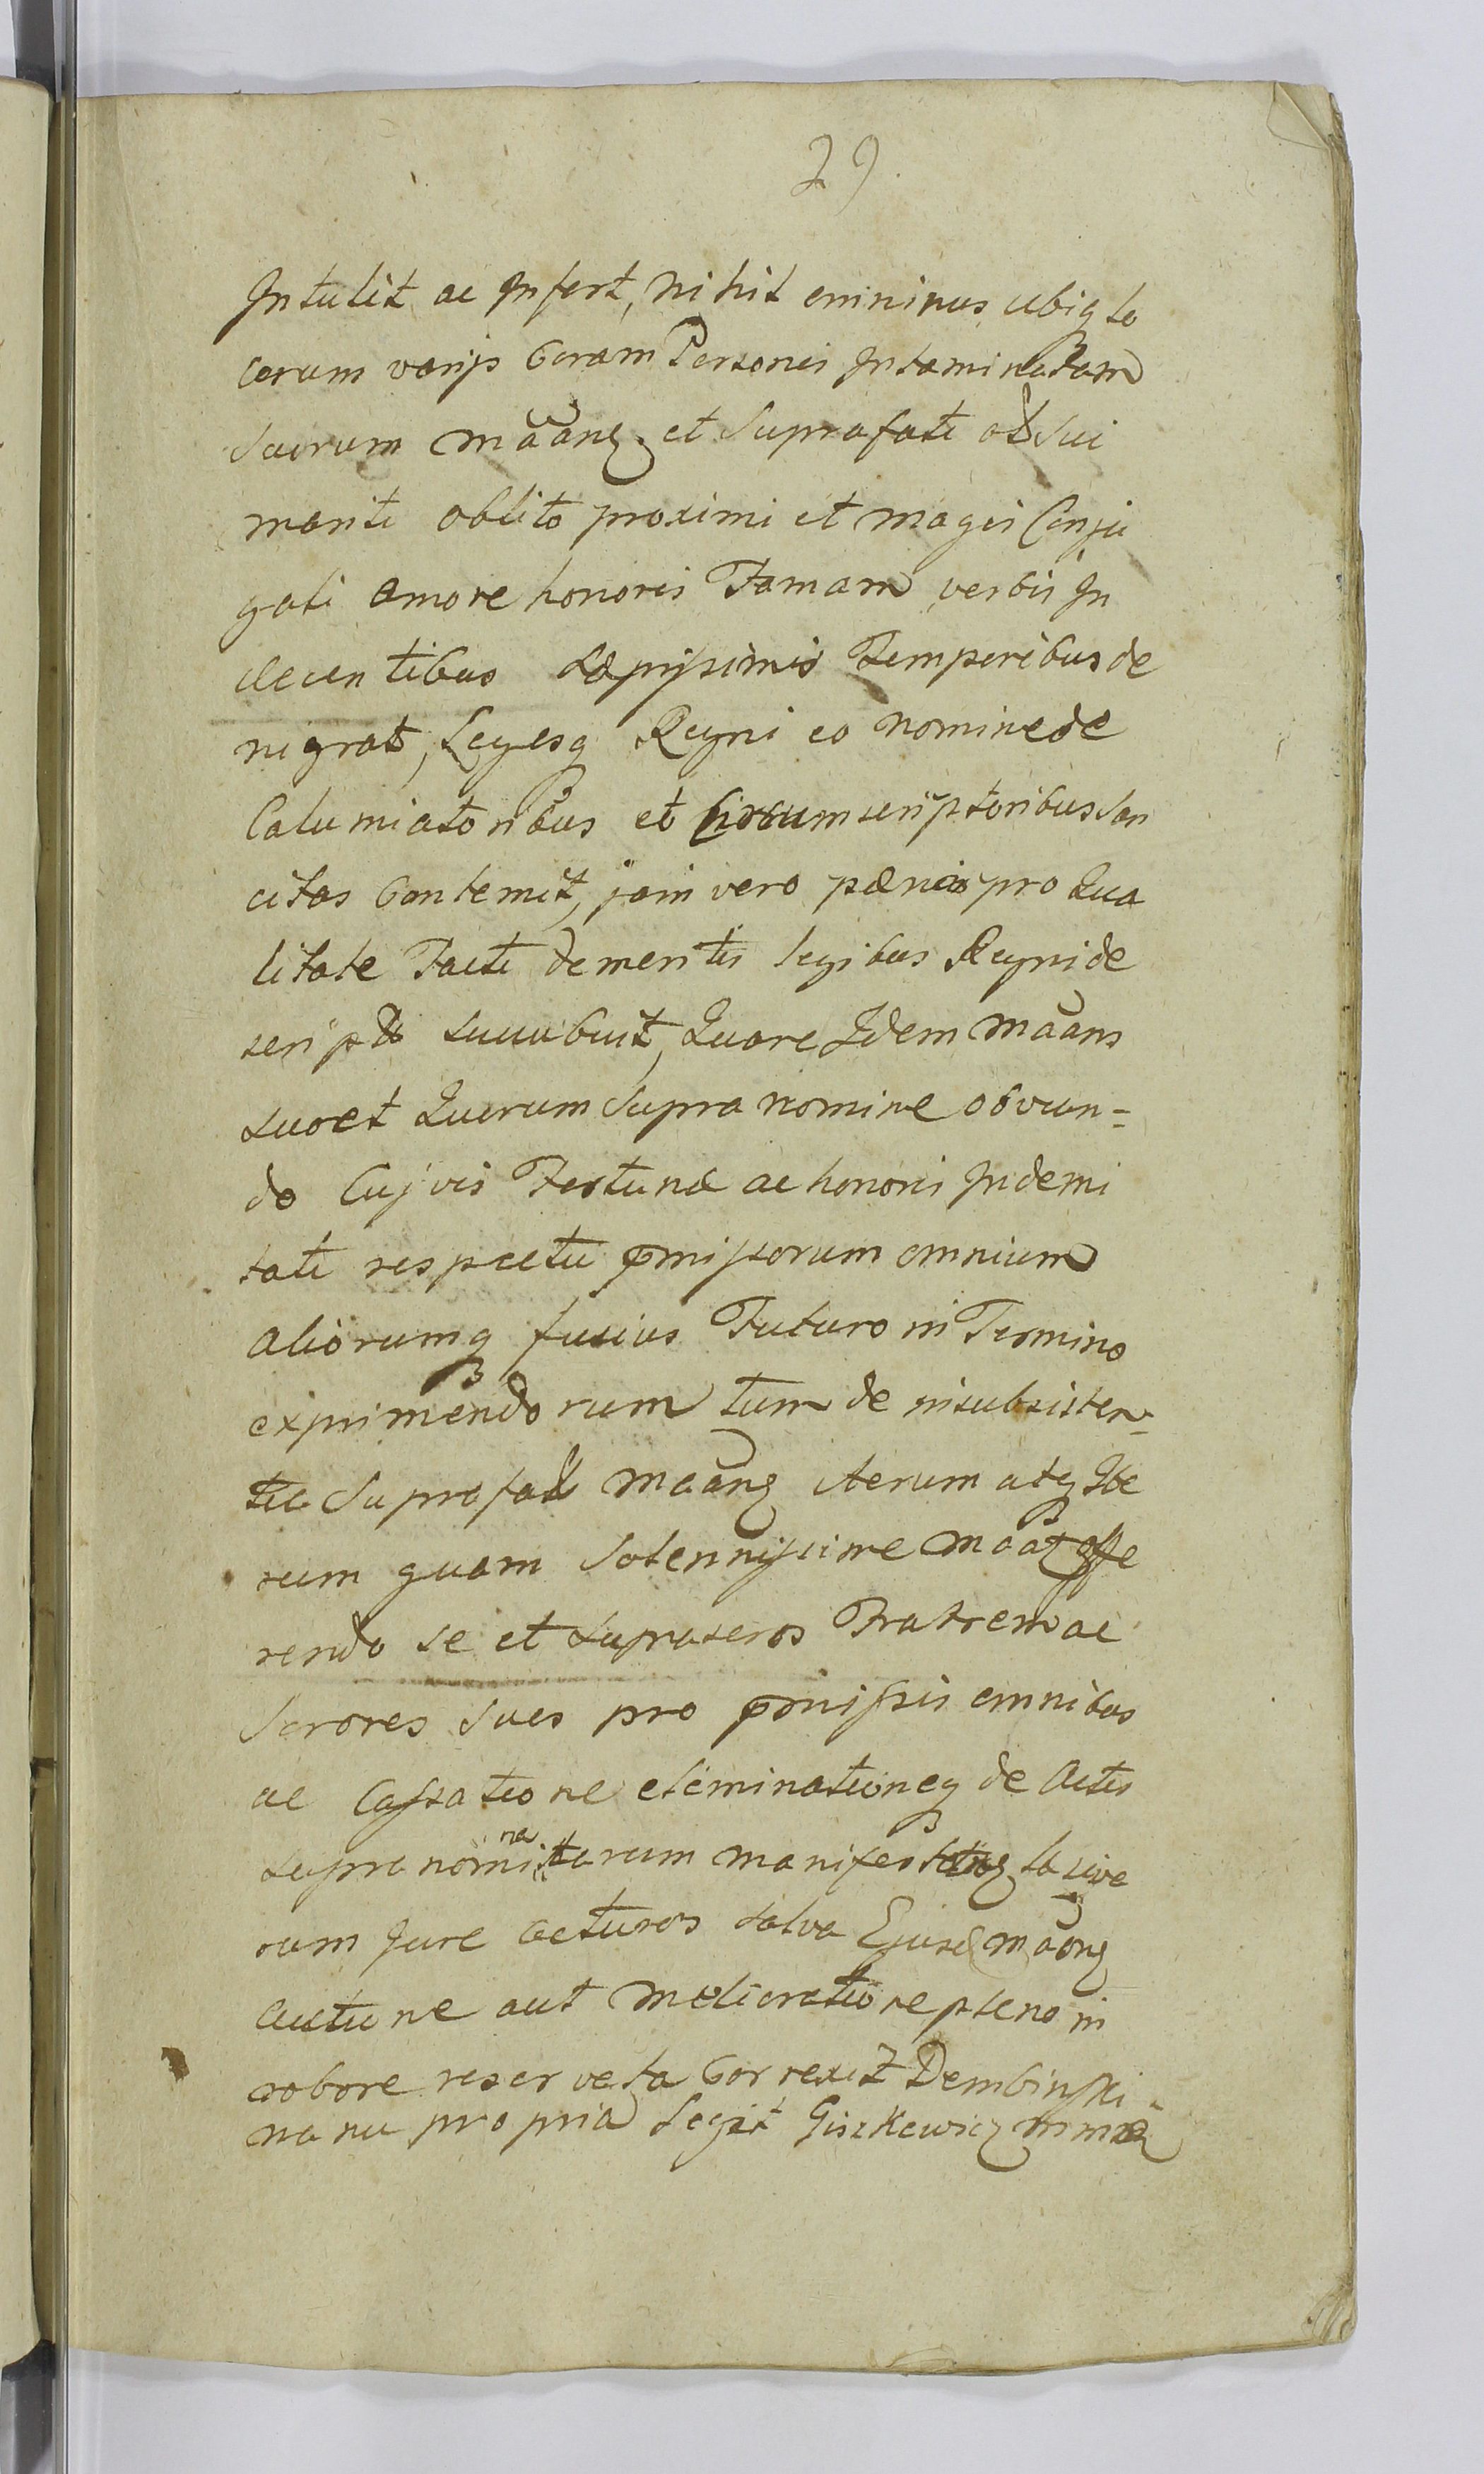 29.
Intulit ac Infert, nihil ominus ubiq lo
corum varijs Coram Personis Intaminatam
suorum Maang et Suprafati ad sui
mariti oblito proximi et magis Conju
gati amore honoris Famam verbis In
decentibus sæpissimis Temporibus de
nigrat, Legesq Regni eo nomine de
Calumiatoribus et Circumscriptoribus san
citas Contemit, jam vero pænis pro Qua
litate Facti demeritis legibus Regni de
scriptis sucubuit, Quare Idem Maans
suo et Quorum supra nomine obviun=
do Cujvis Fortunæ ac honoris Indemi
tati respectu pmissorum omnium
aliorumq fusius Futuro in Termino
exprimendorum tum de insubsisten=
tia Suprafati Maang iterum atq Ite
rum quam Solennissime Maatz offe
rendo se et supraseros Fratrem ac
Sorores suos pro pmissis omnibus
ac Cassatione eliminationeq de Actis
supra nominatarum manifestaong
rum Jure acturos salva Ejusd Maong
auctione aut melioratione pleno in
robore reservata Correxit Dembinski
manu propria Legit Giszkewicz mmp